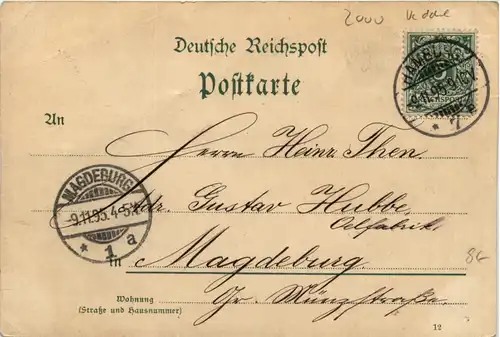 2000 Veddel
Deutsche Reichspost
Postkarte
HAMBURG
9.11.95
* 7
REICHSPOST
An
Herrn Heinr. Then.
Adr. Gustav Hubbe,
Oelfabrik
In Magdeburg
Gr. Münzstraße.
MAGDEBURG
9.11.95. 4-5
* 1 a
8€
Wohnung
(Straße und Hausnummer)
12